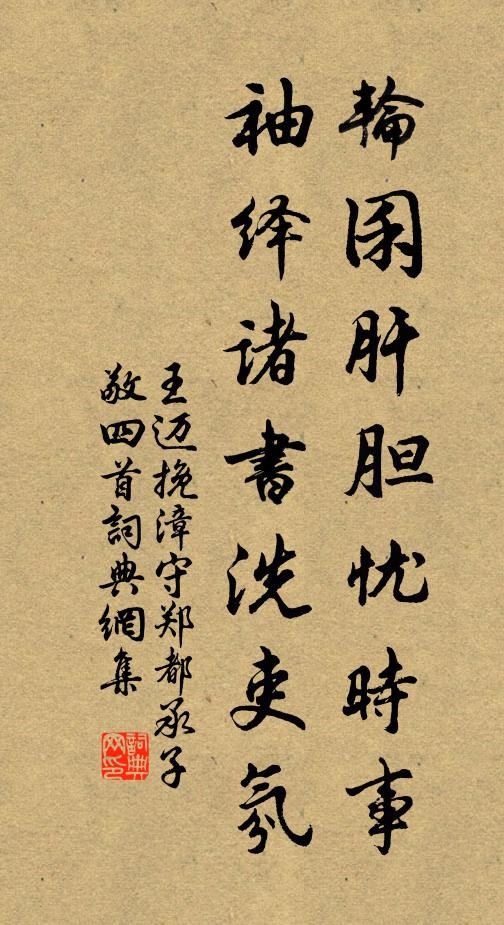 輪囷肝胆忧時事
袖绎诸書洗吏氛
王迈挽漳守郑都承子
敬四首詞典網集
詞典
网印